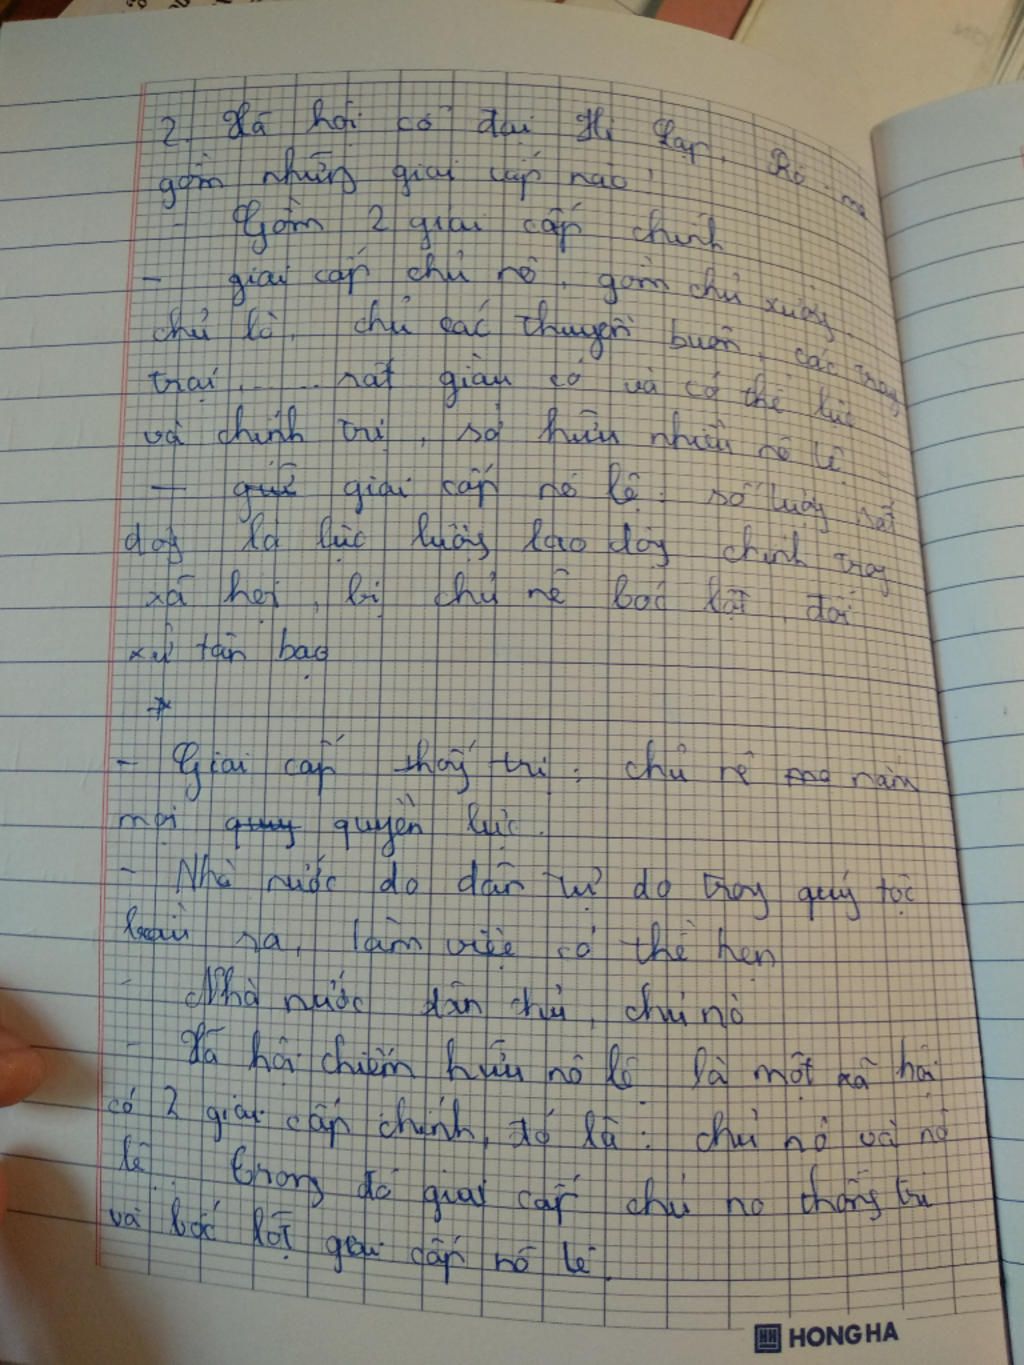 2. Xã hội cổ đại Hi Lạp, Rô-ma
gồm những giai cấp nào?
- Gồm 2 giai cấp chính
- giai cấp chủ nô, gồm chủ xưởng,
chủ lò, chủ các thuyền buôn, các trang
trại, ...... rất giàu có và có thế lực
và chính trị, sở hữu nhiều nô lệ
- giai cấp nô lệ: số lượng rất
đông là lực lượng lao động chính trong
xã hội, bị chủ nô bóc lột, đối
xử tàn bạo
- Giai cấp thống trị: chủ nô nắm
mọi quyền lực.
- Nhà nước do dân tự do trong quý tộc
bầu ra, làm việc có thể hẹn
- Nhà nước dân chủ, chủ nô
- Xã hội chiếm hữu nô lệ là một xã hội
có 2 giai cấp chính, đó là: chủ nô và nô
lệ. trong đó giai cấp chủ nô thống trị
và bóc lột giai cấp nô lệ.
HONG HA